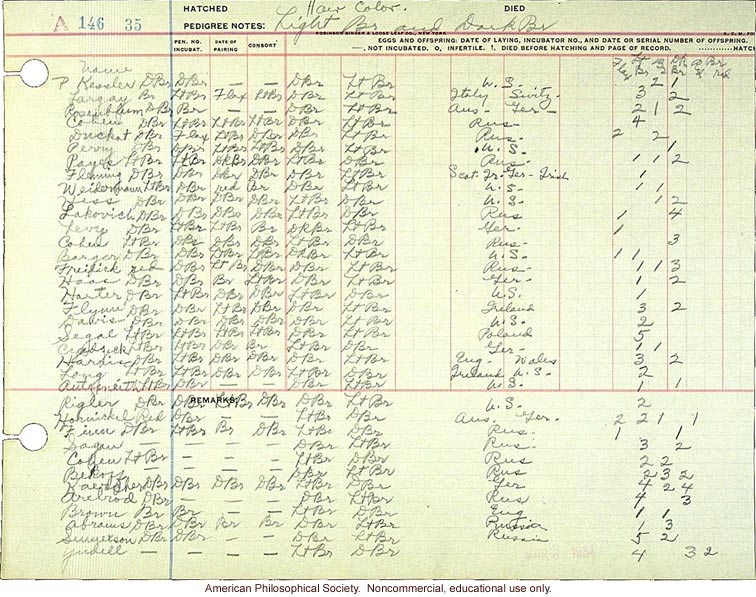 A 146 35 HATCHED Hair Color. DIED
PEDIGREE NOTES: Light Br and Dark Br
ROBINSON BINDER & LOOSE LEAF CO., NEW YORK
PEN. NO. INCUBAT. DATE OF PAIRING CONSORT EGGS AND OFFSPRING: DATE OF LAYING, INCUBATOR NO., AND DATE OR SERIAL NUMBER OF OFFSPRING.
—, NOT INCUBATED. O, INFERTILE. †, DIED BEFORE HATCHING AND PAGE OF RECORD.
Name
P Kessler DBr DBr — — DBr LtBr U.S. 2 1
Br LtBr Flax LtBr DBr LtBr Italy Switz. 3 2
Rosenbloom DBr Br — — DBr LtBr Aus- Ger- 2 1 2
Cohen DBr LtBr LtBr LtBr DBr LtBr Rus 4
Duckat DBr Flax LtBr DBr DBr LtBr Rus. 2 2
Perry DBr LtBr LtBr DBr LtBr U.S. 1
LtBr LtBr DkBr DBr LtBr DBr Rus- 1 1 2
Fleming DBr DBr DBr DBr DBr LtBr Scot Ir-Ger-Irish 1
Weidermann LtBr DBr red Br DBr LtBr U.S. 1 1
DBr DBr DBr LtBr DBr U.S. 1 2
Lakovich DBr DBr DBr DBr LtBr DBr Rus 1 4
Levy DBr LtBr LtBr Br DkBr LtBr Ger. 1
Cohen LtBr DBr DBr DBr LtBr DBr Rus. 3
Barger DBr DBr DBr LtBr DkBr LtBr U.S. 1 1
red DBr LtBr DBr DBr LtBr Rus- 1 1 3
Haas DBr DBr Br LtBr DBr LtBr Ger- 1 2
Harter DBr LtBr DBr DBr LtBr DBr U.S. 1
Flynn DBr DBr LtBr DBr DBr LtBr Ireland 3 2
Davis DBr DBr DBr LtBr U.S. 2
Segal LtBr LtBr LtBr LtBr DBr LtBr Poland 5
LtBr DBr Br LtBr DBr Ger. 1 1
Harris LtBr DBr DBr DBr LtBr DBr Eng- Wales 3 2
Long LtBr LtBr DBr DBr LtBr DBr Ireland U.S. 2
LtBr DBr — — LtBr DBr U.S. 1 1
REMARKS:
Rigler DBr DBr DBr DBr LtBr U.S. 2
Red — — — LtBr DBr Aus. Ger. 2 2 1 1
Finn DBr LtBr Br DBr LtBr DBr Rus. 1 1
— — — DBr LtBr Rus- 3 2
Cohen LtBr — — — LtBr DBr Rus 2 2
— — — DBr LtBr Rus 2 3 2
DBr DBr DBr DBr LtBr DBr Ger 4 2 4
Axelrod DBr — — — DBr LtBr Rus 4 3
Brown Br Br — — LtBr DBr Eng 1 1
Abrams DBr DBr Br Br DBr LtBr Russia 1 3
DBr DBr — — DBr LtBr Russia 5 2
Yudell — — — LtBr DBr 4 3 2
American Philosophical Society. Noncommercial, educational use only.